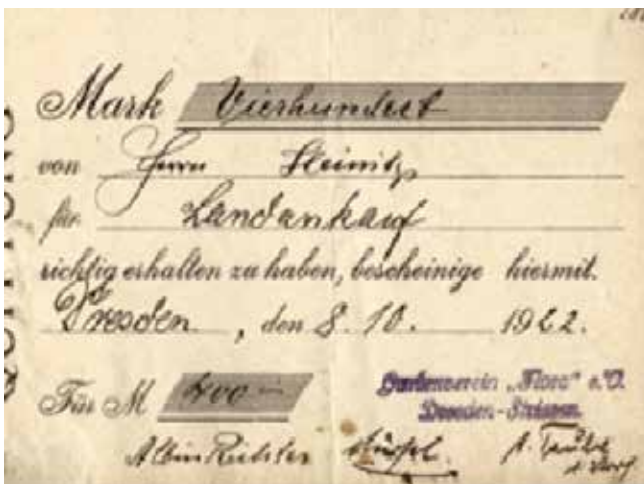 Mark Vierhundert
von Herrn Steinitz
für Landankauf
richtig erhalten zu haben, bescheinige hiermit.
Dresden, den 8. 10. 1922.
Für M 400.—
Gartenverein „Flora" e.V.
Dresden-Striesen.
Albin Richter